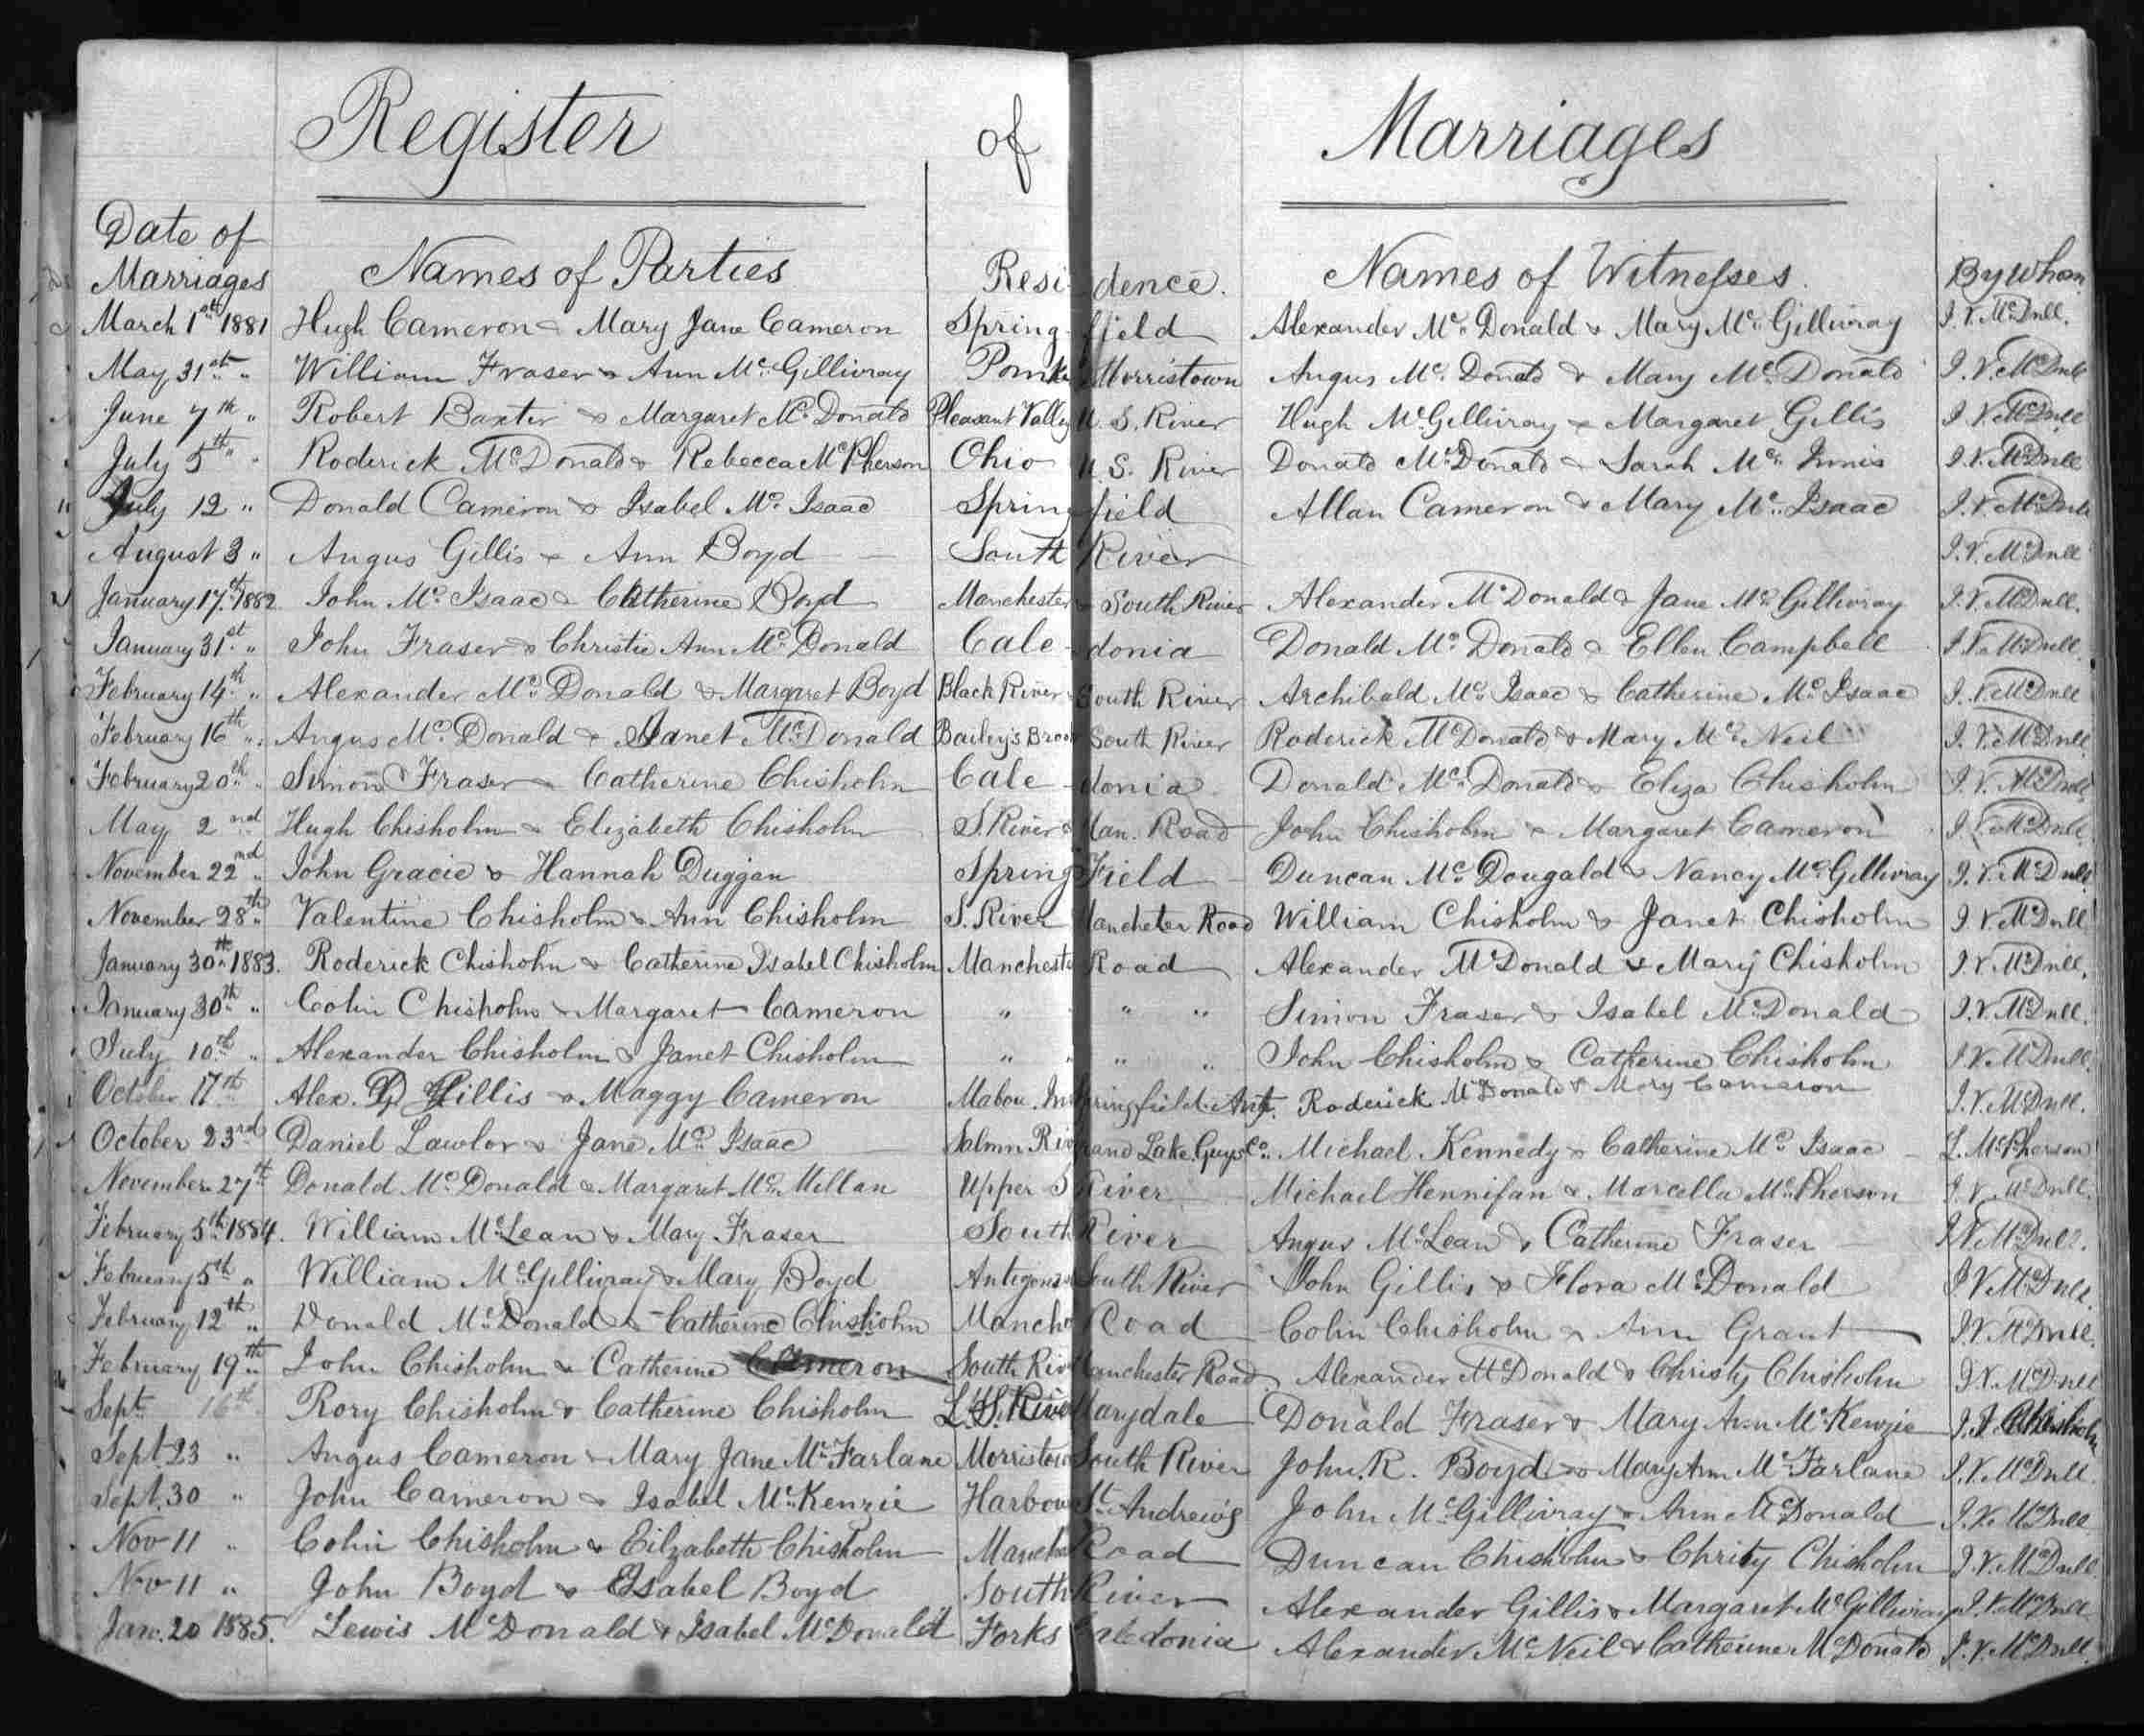 Register of Marriages
Date of
Marriages Names of Parties Residence. Names of Witnesses. By Whom
March 1st 1881 Hugh Cameron & Mary Jane Cameron Springfield Alexander Mc. Donald & Mary Mc. Gillivray J. V. McDnll.
May 31st " William Fraser & Ann Mc. Gillivray Morristown Angus Mc. Donald & Mary Mc. Donald J. V. McDnll
June 7th " Robert Baxter & Margaret Mc. Donald Pleasant Valley U. S. River Hugh McGillivray & Margaret Gillis J. V. McDnll
July 5th " Roderick McDonald & Rebecca McPherson Ohio U. S. River Donald McDonald & Sarah Mc. Innis J. V. McDnll
July 12 " Donald Cameron & Isabel Mc. Isaac Springfield Allan Cameron & Mary Mc. Isaac J. V. McDnll
August 3 " Angus Gillis & Ann Boyd South River J. V. McDnll
January 17th 1882 John Mc. Isaac & Catherine Boyd Manchester & South River Alexander McDonald & Jane Mc. Gillivray J. V. McDnll.
January 31st " John Fraser & Christie Ann Mc. Donald Cale-donia Donald Mc. Donald & Ellen Campbell J. V. McDnll.
February 14th " Alexander Mc. Donald & Margaret Boyd Black River South River Archibald Mc. Isaac & Catherine Mc. Isaac J. V. McDnll
February 16th " Angus Mc. Donald & Janet McDonald Bailey's Brook South River Roderick McDonald & Mary Mc. Neil J. V. McDnll
February 20th " Simon Fraser & Catherine Chisholm Cale-donia Donald Mc. Donald & Eliza Chisholm J. V. McDnll
May 2nd Hugh Chisholm & Elizabeth Chisholm S. River & Man. Road John Chisholm & Margaret Cameron J. V. McDnll.
November 22nd " John Gracie & Hannah Duggan Spring Field Duncan Mc. Dougald & Nancy Mc. Gillivray J. V. McDnll
November 28th " Valentine Chisholm & Ann Chisholm S. River Mancheter Road William Chisholm & Janet Chisholm J. V. McDnll
January 30th 1883. Roderick Chisholm & Catherine Isabel Chisholm Manchester Road Alexander McDonald & Mary Chisholm J. V. McDnll.
January 30th " Colin Chisholm & Margaret Cameron " " " Simon Fraser & Isabel McDonald J. V. McDnll.
July 10th " Alexander Chisholm & Janet Chisholm " " " John Chisholm & Catherine Chisholm J. V. McDnll.
October 17th Alex. D Gillis & Maggy Cameron Mabou. In Springfield. Ant. Roderick McDonald & Mary Cameron J. V. McDnll.
October 23rd Daniel Lawlor & Jane Mc. Isaac Salmn River Grand Lake, Guys Co. Michael Kennedy & Catherine Mc. Isaac L. McPherson
November 27th Donald Mc. Donald & Margaret Mc. Millan Upper S River Michael Hennifan & Marcella McPherson J. V. McDnll.
February 5th 1884. William McLean & Mary Fraser South River Angus McLean & Catherine Fraser J. V. McDnll.
February 5th " William McGillivray & Mary Boyd South River John Gillis & Flora McDonald J. V. McDnll.
February 12th " Donald McDonald & Catherine Chisholm Manch Road Colin Chisholm & Ann Grant J. V. McDnll.
February 19th " John Chisholm & Catherine Cameron South River Manchester Road Alexander McDonald & Christy Chisholm J. V. McDnll
Sept. 16th Rory Chisholm & Catherine Chisholm L. S. River Marydale Donald Fraser & Mary Ann McKenzie Chisholm
Sept 23 " Angus Cameron & Mary Jane McFarlane Morristown South River John. R. Boyd & Mary Ann McFarlane J. V. McDnll.
Sept. 30 " John Cameron & Isabel McKenzie Harbour St. Andrew's John McGillivray & Ann McDonald J. V. McDnll
Nov 11 " Colin Chisholm & Eilzabeth Chisholm Manch Road Duncan Chisholm & Christy Chisholm J. V. McDnll.
Nov 11 " John Boyd & Isabel Boyd South River Alexander Gillis & Margaret McGillivray J. V. McDnll
Jan. 20 1885. Lewis McDonald & Isabel McDonald Forks Caledonia Alexander McNeil & Catherine McDonald J. V. McDnll.